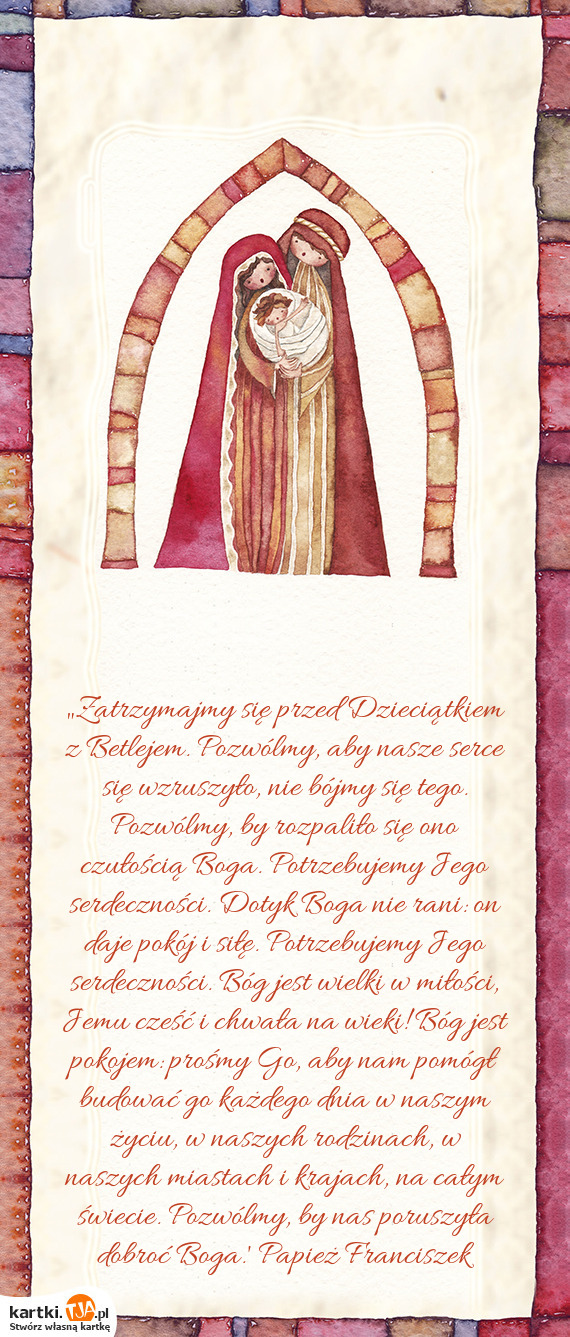 „Zatrzymajmy się przed Dzieciątkiem
z Betlejem. Pozwólmy, aby nasze serce
się wzruszyło, nie bójmy się tego.
Pozwólmy, by rozpaliło się ono
czułością Boga. Potrzebujemy Jego
serdeczności. Dotyk Boga nie rani: on
daje pokój i siłę. Potrzebujemy Jego
serdeczności. Bóg jest wielki w miłości,
Jemu cześć i chwała na wieki! Bóg jest
pokojem: prośmy Go, aby nam pomógł
budować go każdego dnia w naszym
życiu, w naszych rodzinach, w
naszych miastach i krajach, na całym
świecie. Pozwólmy, by nas poruszyła
dobroć Boga.' Papież Franciszek
kartki.TJA.pl
Stwórz własną kartkę